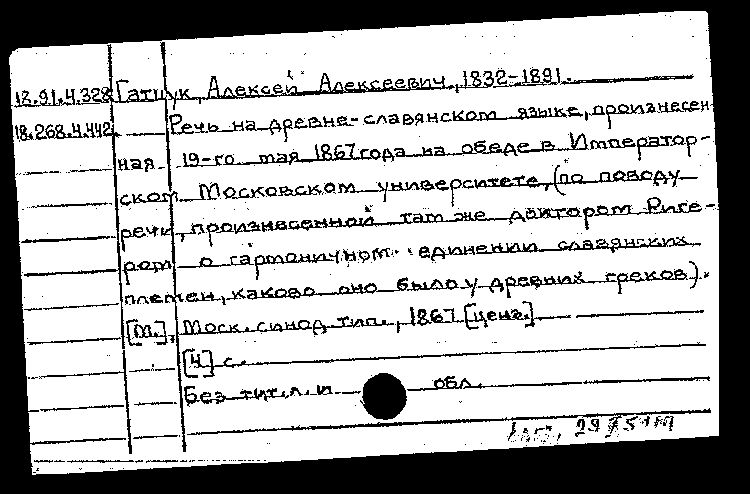 18.91.4.328 Гатцук, Алексей Алексеевич, 1832-1891.
18.268.4.442. Речь на древне-славянском языке, произнесен-
ная 19-го мая 1867 года на обеде в Император-
ском Московском университете, (по поводу
речи, произнесенной там же доктором Риге-
ром о гармоничном единении славянских
племен, каково оно было у древних греков).
[М.], Моск. синод. тип., 1867 [ценз.]
[4] с.
Без тит. л. и обл.